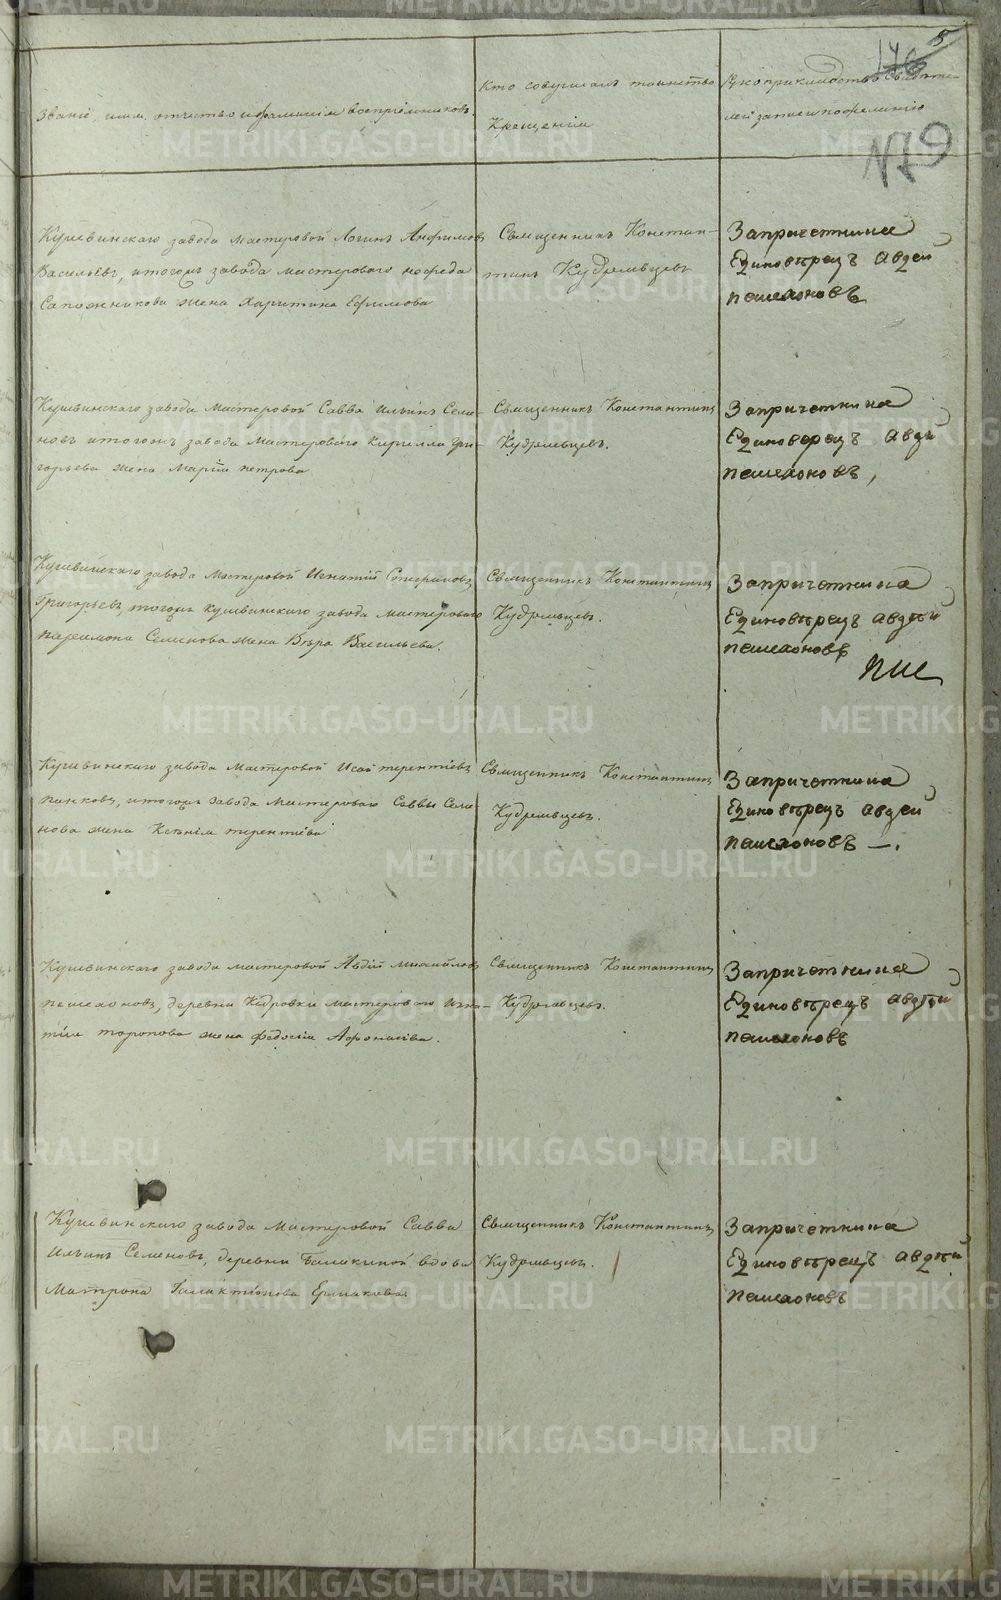 5
176
Званіе, имя, отчество и фамилія воспріемниковъ.
Кто совершалъ таинство
Крещенія
Рукоприкладство свидѣте-
лей записи по желанію
179
Кушвинскаго завода мастеровой Логинъ Анфимовъ
Васильевъ, итогожъ завода мастерового
Сапожникова жена Харитина Ефимова
Священникъ Констан-
тинъ Кудрявцевъ
Запричетника
Единовѣрецъ Авдей
пешехоновъ
Кушвинскаго завода Мастеровой Савва Ильинъ Семе-
новъ итогожъ завода Мастероваго Кирилла Гри-
горьева жена Марія петрова
Священникъ Константинъ
Кудрявцевъ.
Запричетника
Единоверецъ Авдей
пешехоновъ,
Кушвинскаго завода Мастеровой Игнатій Стефановъ
Григорьевъ тогожъ кушвинскаго завода мастероваго
парамона Семенова жена Вѣра Васильева.
Священникъ Константинъ
Кудрявцевъ.
Запричетника
Единовѣрецъ Авдѣй
пешехоновъ
Кушвинскаго завода Мастеровой Исай терентіевъ
панковъ, итогожъ завода Мастероваго Саввы Семе
нова жена Ксѣнія терентіева
Священникъ Константинъ
Кудрявцевъ.
Запричетника
Единовѣрецъ Авдей
пешехоновъ —.
Кушвинскаго завода мастеровой Авдій Михайловъ
пешехоновъ, деревни Кедровки мастероваго Игна-
тія торопова жена федосія Афонасіева.
Священникъ Константинъ
Кудрявцевъ.
Запричетника
Единовѣрецъ Авдѣй
пешехоновъ
Кушвинскаго завода Мастеровой Савва
Ильинъ Семеновъ, деревни Балакиной вдова
Матрона Галактіонова Ермакова
Священникъ Константинъ
Кудрявцевъ.
Запричетника
Единовѣрецъ Авдѣй
пешехоновъ
METRIKI.GASO-URAL.RU